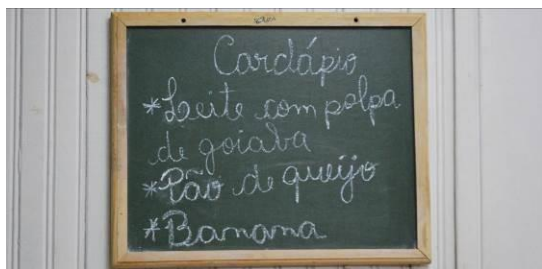 Cardápio
*Leite com polpa
de goiaba
*Pão de queijo
*Banana